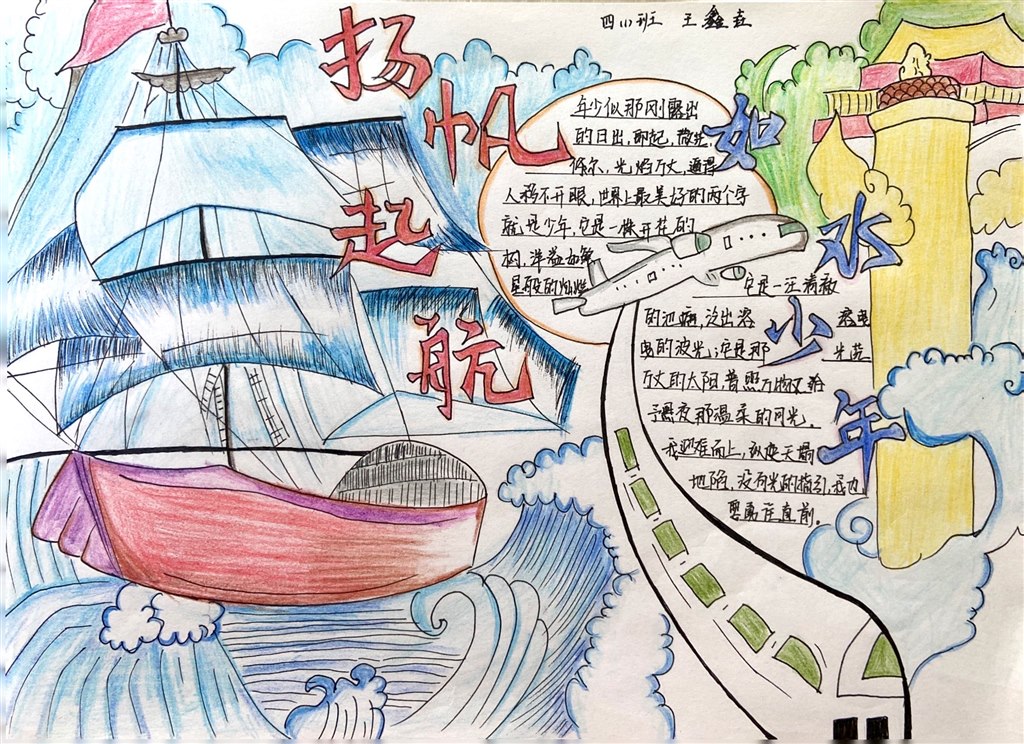 四(1)班 王鑫垚
扬帆起航
如水少年
年少似那刚露出
的日出,即起,微芒,
俳尔,光焰万丈,逼得
人移不开眼,世界上最美好的两个字
就是少年,它是一株开花的
树,洋溢如繁
星般的灿烂
它是一汪清澈
的池塘,泛出
的波光,它是那 光芒
万丈的太阳,普照万物又给
予黑夜那温柔的月光。
我迎难而上,纵使天塌
地陷,没有光的指引,我也
要勇往直前。